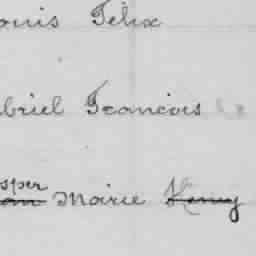 ouis Felix
briel Francois
sper
Marie